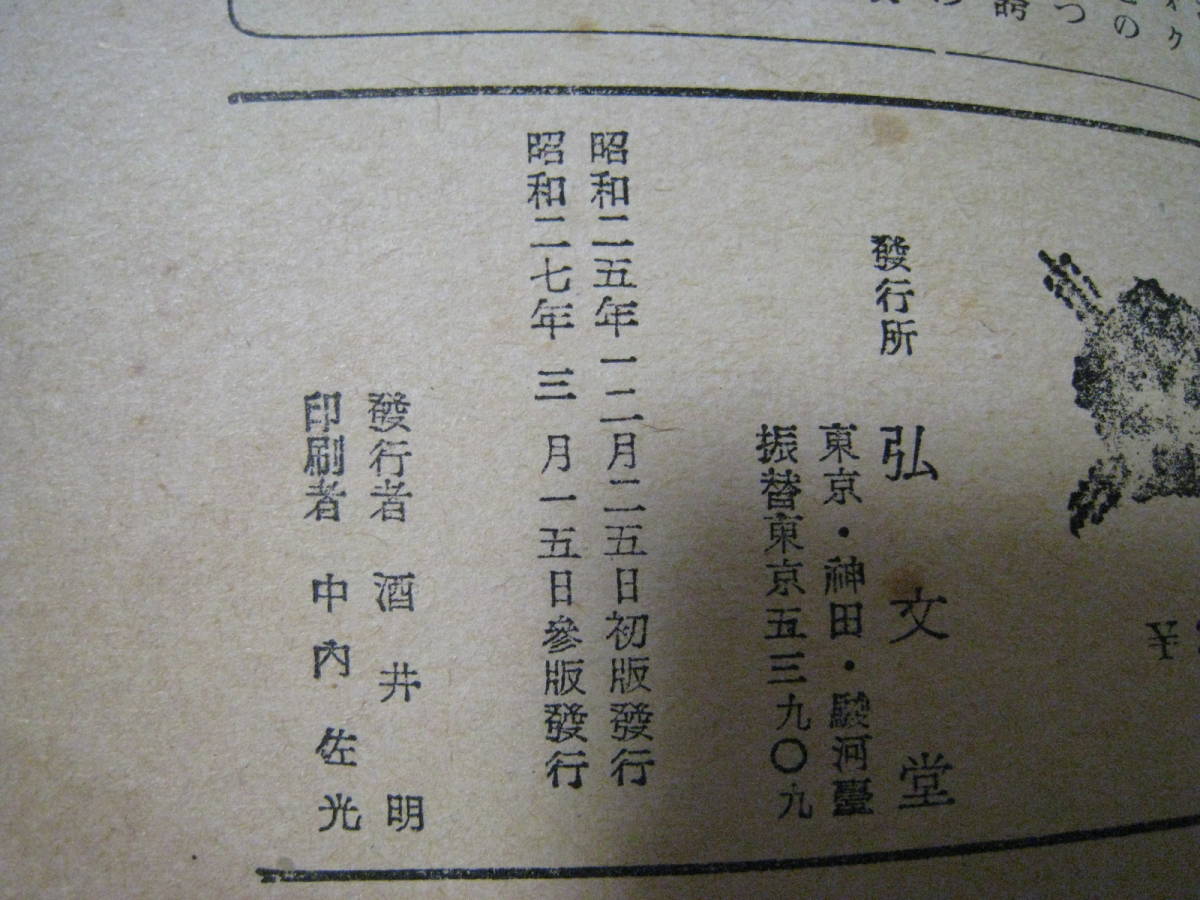 發行所 弘文堂
東京・神田・駿河臺
振替東京五三九〇九
昭和二五年一二月二五日初版發行
昭和二七年三月一五日參版發行
發行者 酒井明
印刷者 中內佐光